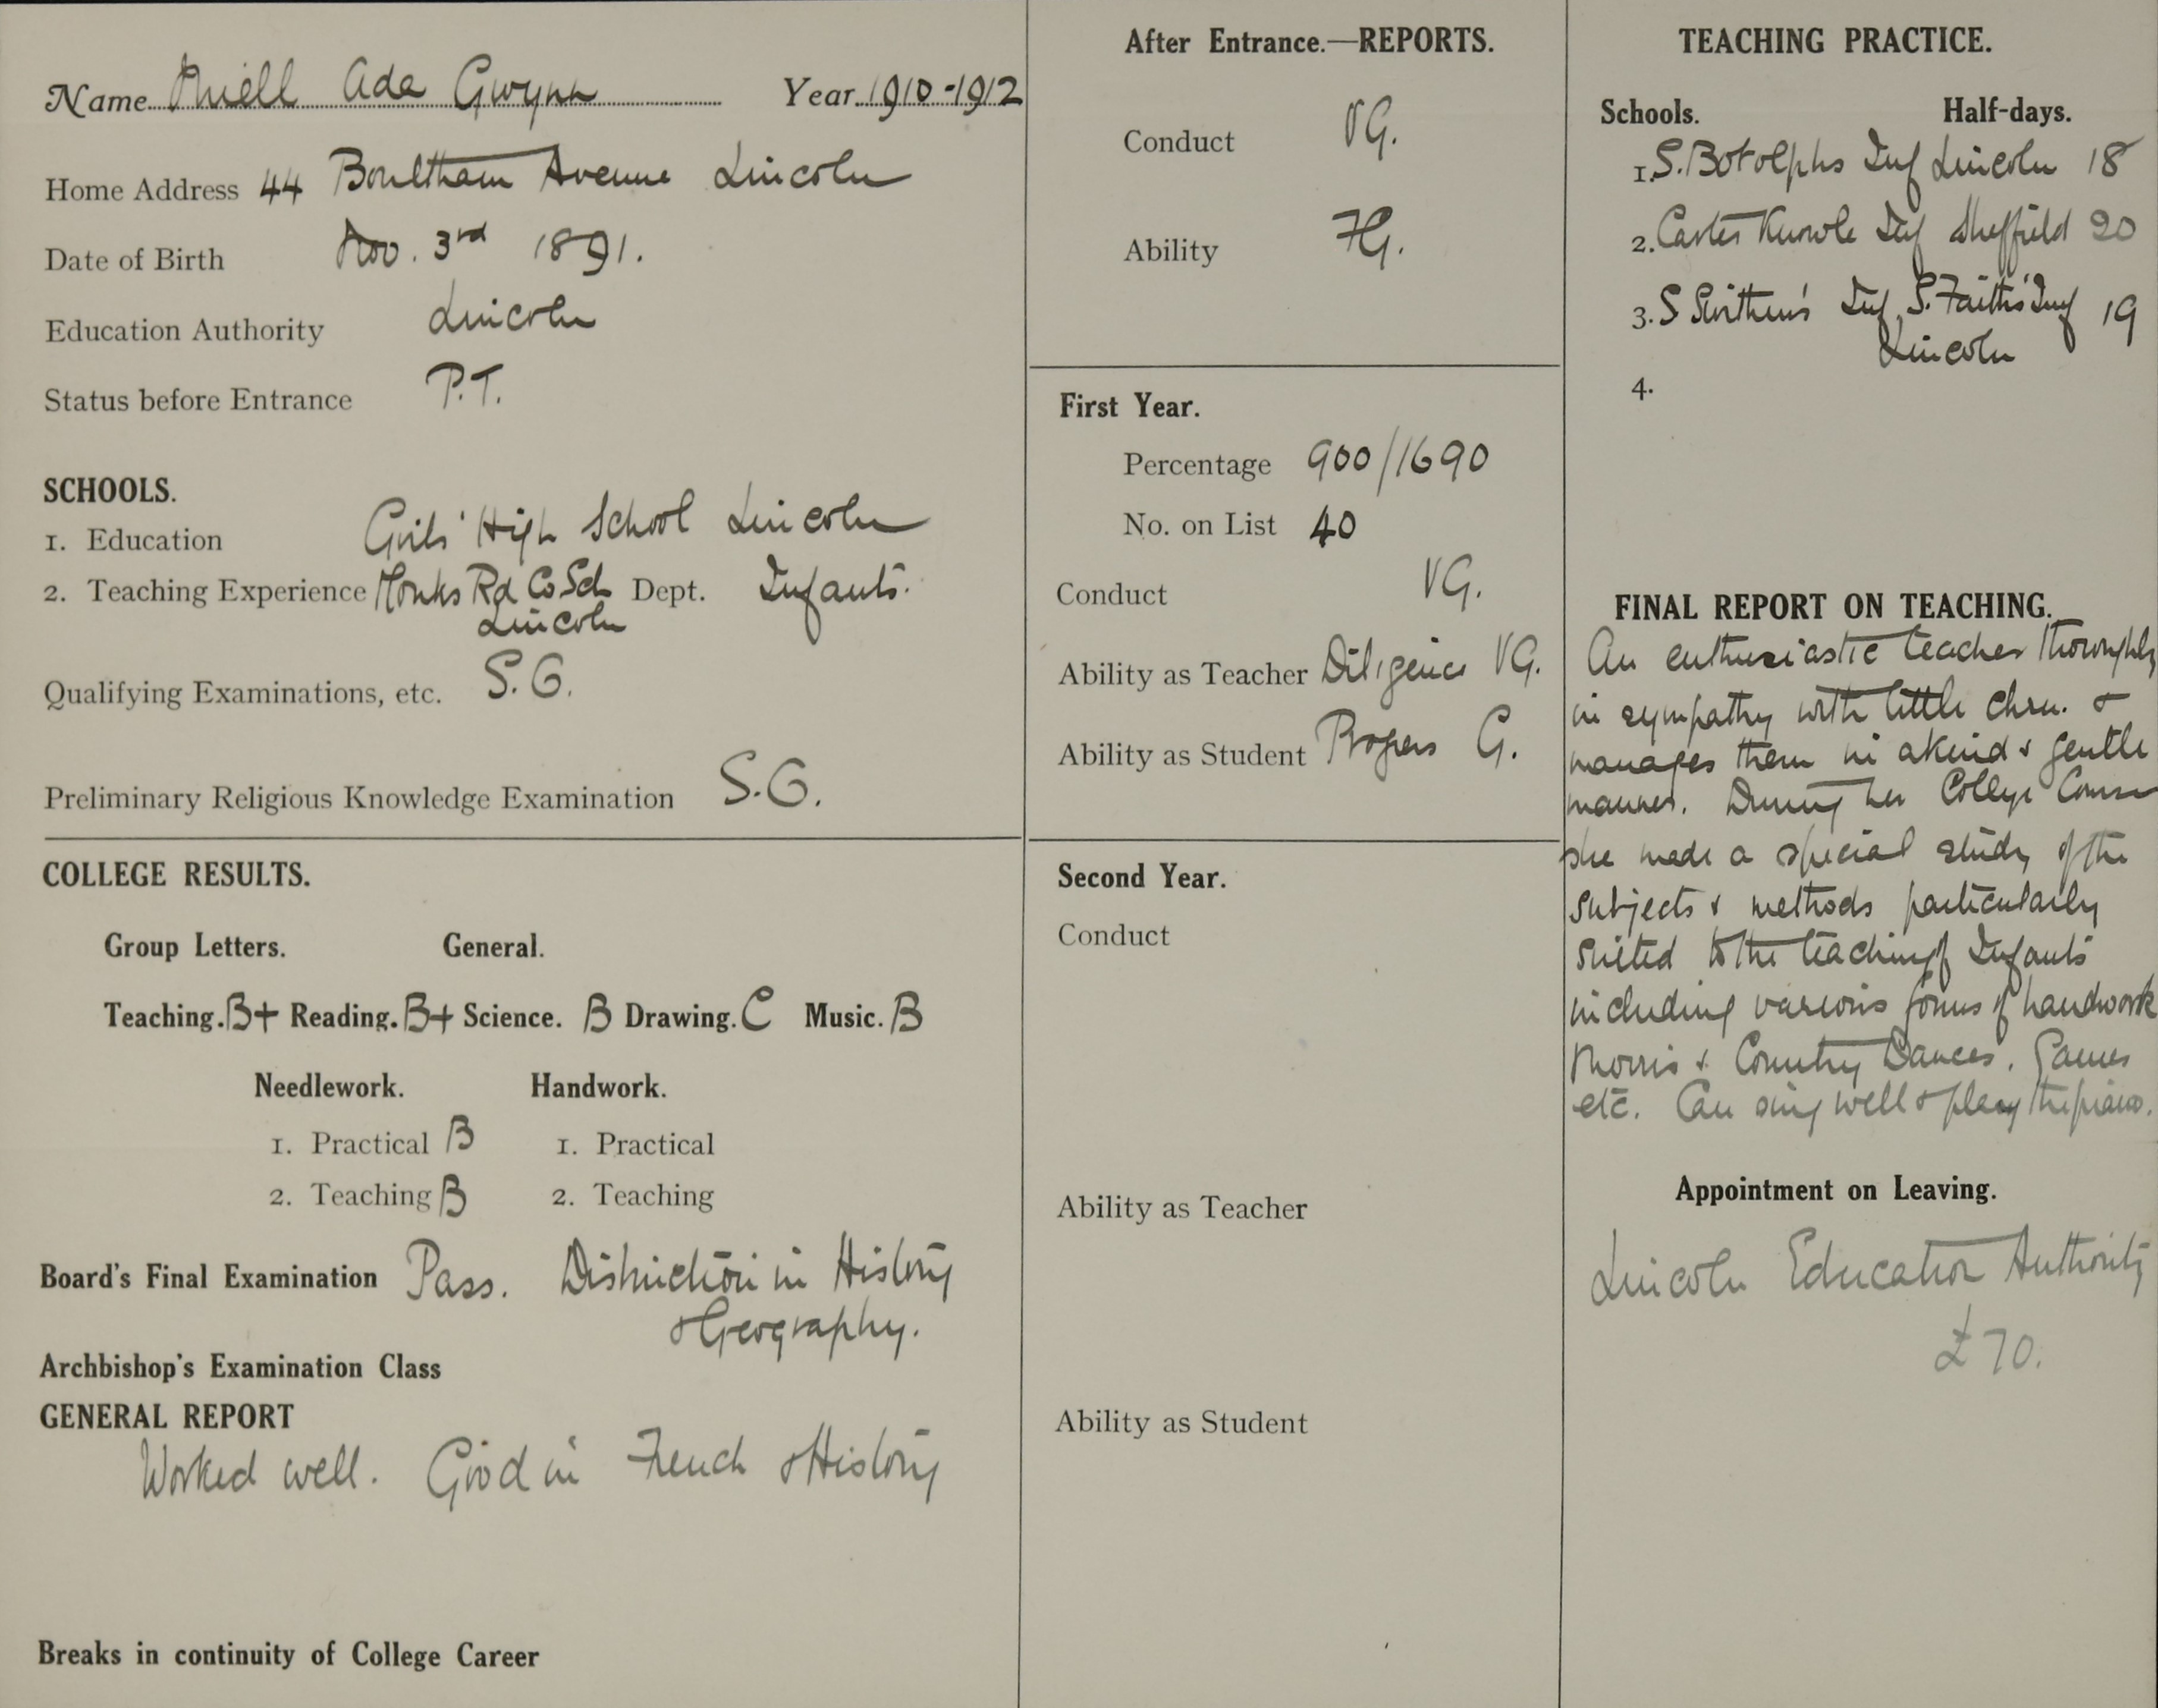 Name Ada Gwynn Year 1910-1912
Home Address 44 Boultham Avenue Lincoln
Date of Birth Nov. 3rd 1891.
Education Authority Lincoln
Status before Entrance P.T.
SCHOOLS.
1. Education Girls' High School Lincoln
2. Teaching Experience Monks Rd Co Sch Dept. Infants.
Lincoln
Qualifying Examinations, etc. S.G.
Preliminary Religious Knowledge Examination S.G.
COLLEGE RESULTS.
Group Letters. General.
Teaching. B+ Reading. B+ Science. B Drawing. C Music. B
Needlework. Handwork.
1. Practical B 1. Practical
2. Teaching B 2. Teaching
Board's Final Examination Pass. Distinction in History
& Geography.
Archbishop's Examination Class
GENERAL REPORT
Worked well. Good in French & History
Breaks in continuity of College Career
After Entrance.—REPORTS.
Conduct VG.
Ability FG.
First Year.
Percentage 900/1690
No. on List 40
Conduct VG.
Ability as Teacher Diligence VG.
Ability as Student Progress G.
Second Year.
Conduct
Ability as Teacher
Ability as Student
TEACHING PRACTICE.
Schools. Half-days.
1. S. Botolphs Inf Lincoln 18
2. Carter Knowle Inf Sheffield 20
3. S Swithun's Inf, S. Faith's Inf 19
Lincoln
4.
FINAL REPORT ON TEACHING.
An enthusiastic teacher thoroughly
in sympathy with little chn. &
manages them in a kind & gentle
manner. During her College Course
she made a special study of the
subjects & methods particularly
suited to the teaching of Infants
including various forms of handwork
Morris & Country Dances, Games
etc. Can sing well & play the piano.
Appointment on Leaving.
Lincoln Education Authority
£70.